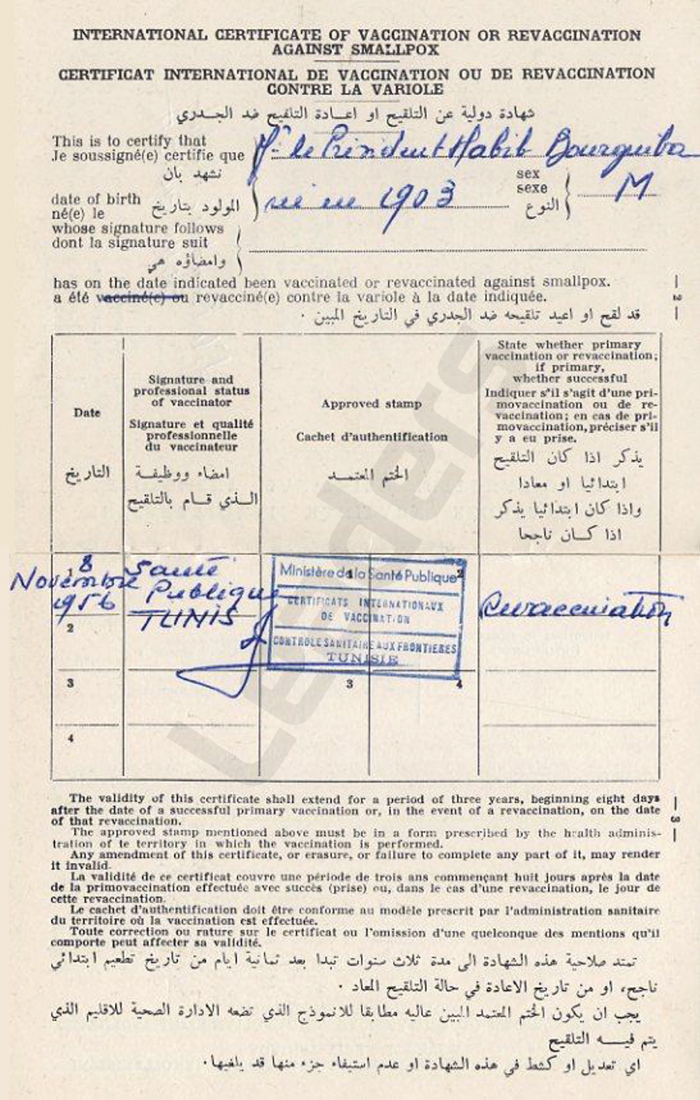 INTERNATIONAL CERTIFICATE OF VACCINATION OR REVACCINATION
AGAINST SMALLPOX
CERTIFICAT INTERNATIONAL DE VACCINATION OU DE REVACCINATION
CONTRE LA VARIOLE
شهادة دولية عن التلقيح او اعادة التلقيح ضد الجدري
This is to certify that
Je soussigné(e) certifie que
نشهد بان
Mr le Président Habib Bourguiba
date of birth
né(e) le
المولود بتاريخ
né en 1903
sex
sexe
النوع
M
whose signature follows
dont la signature suit
وامضاؤه هي
has on the date indicated been vaccinated or revaccinated against smallpox.
a été vacciné(e) ou revacciné(e) contre la variole à la date indiquée.
قد لقح او اعيد تلقيحه ضد الجدري في التاريخ المبين .
— 2 —
Date
التاريخ
Signature and
professional status
of vaccinator
Signature et qualité
professionnelle
du vaccinateur
امضاء ووظيفة
الذي قام بالتلقيح
Approved stamp
Cachet d'authentification
الختم المعتمد
State whether primary
vaccination or revaccination;
if primary,
whether successful
Indiquer s'il s'agit d'une pri-
movaccination ou de re-
vaccination; en cas de pri-
movaccination, préciser s'il
y a eu prise.
يذكر اذا كان التلقيح
ابتدائيا او معادا
واذا كان ابتدائيا يذكر
اذا كان ناجحا
8
Novembre
1956
Santé
Publique
TUNIS
Ministère de la Santé Publique
CERTIFICATS INTERNATIONAUX
DE VACCINATION
CONTRÔLE SANITAIRE AUX FRONTIÈRES
TUNISIE
1
2
Revaccination
2
3
3
4
4
Leaders
The validity of this certificate shall extend for a period of three years, beginning eight days
after the date of a successful primary vaccination or, in the event of a revaccination, on the date
of that revaccination.
The approved stamp mentioned above must be in a form prescribed by the health adminis-
tration of te territory in which the vaccination is performed.
Any amendment of this certificate, or erasure, or failure to complete any part of it, may render
it invalid.
— 3 —
La validité de ce certificat couvre une période de trois ans commençant huit jours après la date
de la primovaccination effectuée avec succès (prise) ou, dans le cas d'une revaccination, le jour de
cette revaccination.
Le cachet d'authentification doit être conforme au modèle prescrit par l'administration sanitaire
du territoire où la vaccination est effectuée.
Toute correction ou rature sur le certificat ou l'omission d'une quelconque des mentions qu'il
comporte peut affecter sa validité.
تمتد صلاحية هذه الشهادة الى مدة ثلاث سنوات تبدا بعد ثمانية ايام من تاريخ تطعيم ابتدائي
ناجح، او من تاريخ الاعادة في حالة التلقيح المعاد .
يجب ان يكون الختم المعتمد المبين عاليه مطابقا للانموذج الذي تضعه الادارة الصحية للاقليم الذي
يتم فيه التلقيح
اي تعديل او كشط في هذه الشهادة او عدم استيفاء جزء منها قد يلغيها.